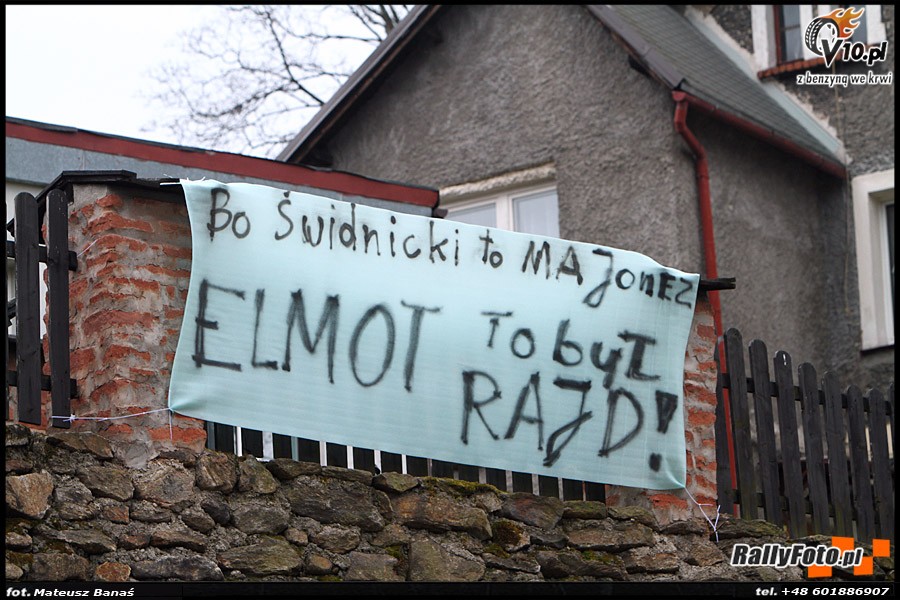 V10.pl
z benzyną we krwi
Bo Świdnicki to MAJonEZ
ELMOT To był
RAJD!
RallyFoto.pl
fot. Mateusz Banaś
tel. +48 601886907